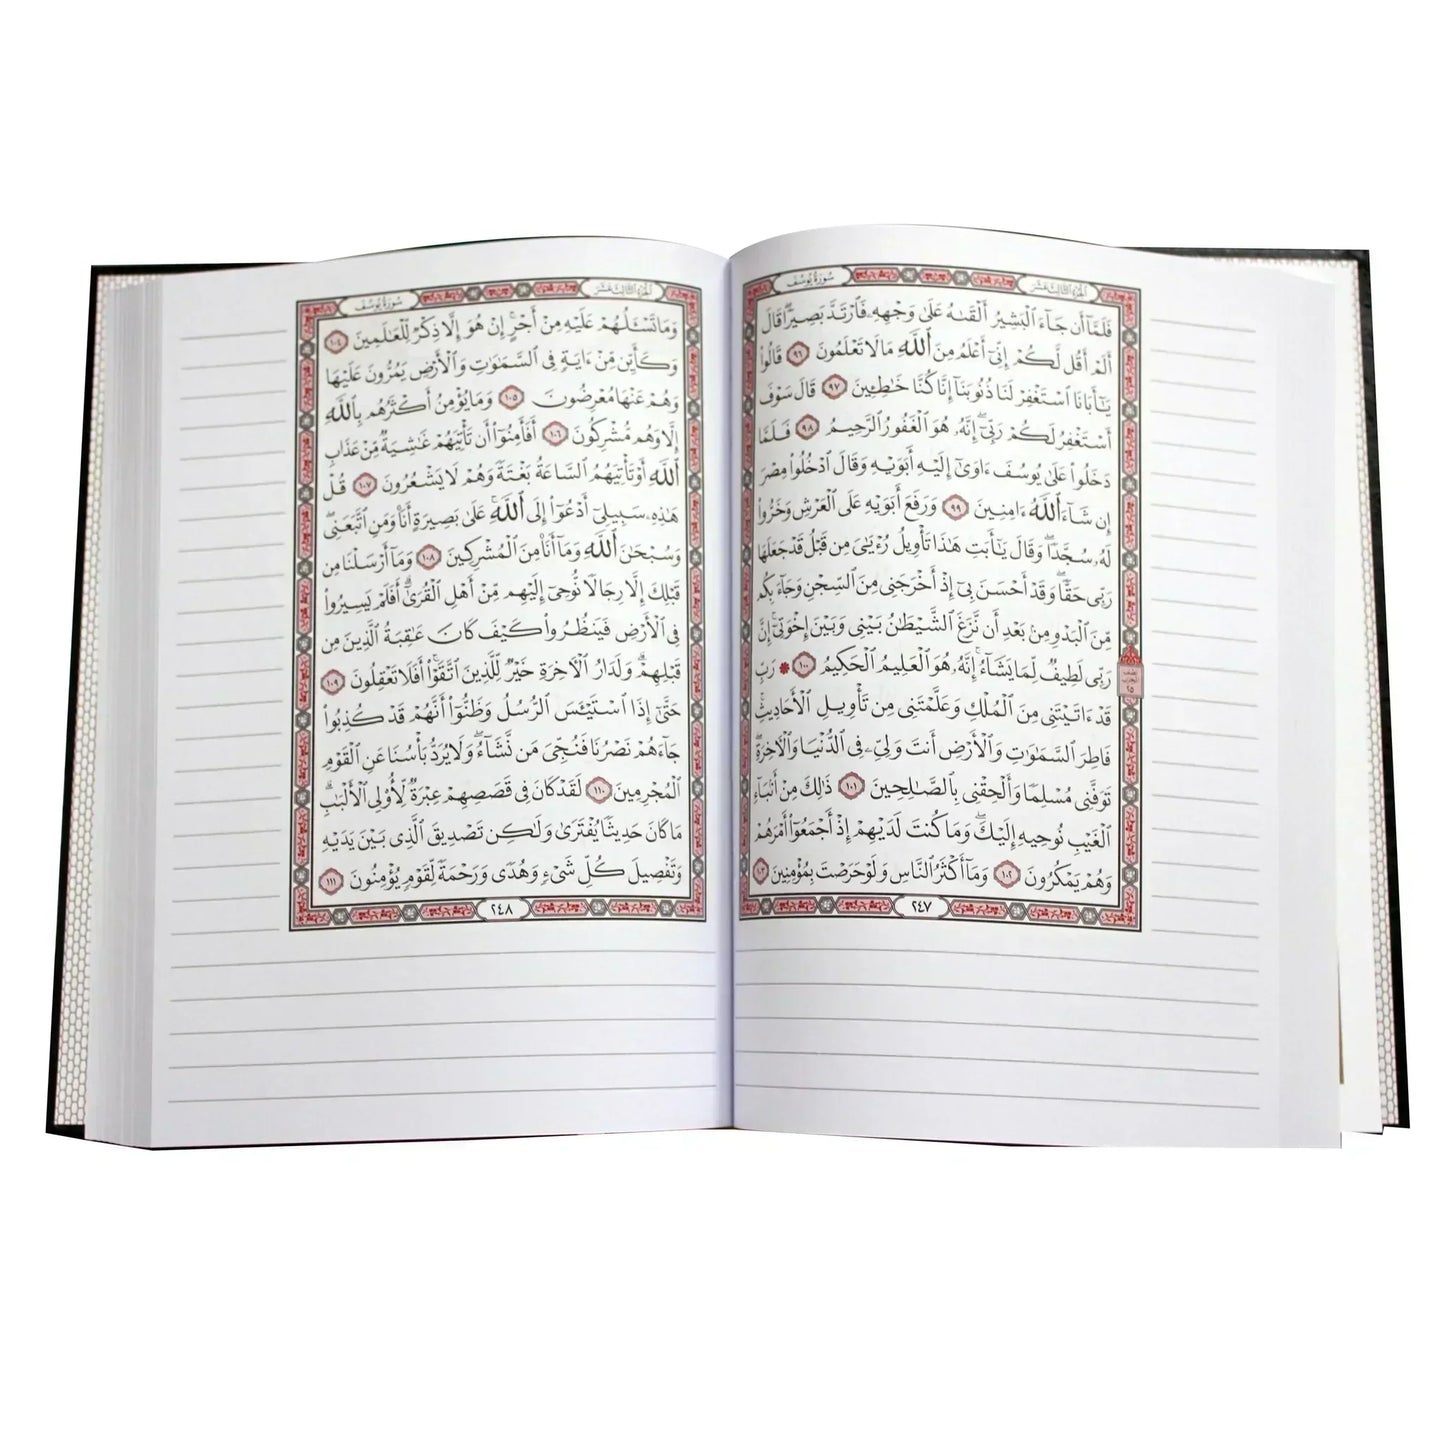 سُورَةُ يُوسُفَ
الجُزْءُ الثَّالِثَ عَشَرَ
فَلَمَّآ أَن جَآءَ ٱلْبَشِيرُ أَلْقَىٰهُ عَلَىٰ وَجْهِهِۦ فَٱرْتَدَّ بَصِيرًاۖ قَالَ
أَلَمْ أَقُل لَّكُمْ إِنِّىٓ أَعْلَمُ مِنَ ٱللَّهِ مَا لَا تَعْلَمُونَ ٩٦ قَالُوا۟
يَـٰٓأَبَانَا ٱسْتَغْفِرْ لَنَا ذُنُوبَنَآ إِنَّا كُنَّا خَـٰطِـِٔينَ ٩٧ قَالَ سَوْفَ
أَسْتَغْفِرُ لَكُمْ رَبِّىٓۖ إِنَّهُۥ هُوَ ٱلْغَفُورُ ٱلرَّحِيمُ ٩٨ فَلَمَّا
دَخَلُوا۟ عَلَىٰ يُوسُفَ ءَاوَىٰٓ إِلَيْهِ أَبَوَيْهِ وَقَالَ ٱدْخُلُوا۟ مِصْرَ
إِن شَآءَ ٱللَّهُ ءَامِنِينَ ٩٩ وَرَفَعَ أَبَوَيْهِ عَلَى ٱلْعَرْشِ وَخَرُّوا۟
لَهُۥ سُجَّدًاۖ وَقَالَ يَـٰٓأَبَتِ هَـٰذَا تَأْوِيلُ رُءْيَـٰىَ مِن قَبْلُ قَدْ جَعَلَهَا
رَبِّى حَقًّاۖ وَقَدْ أَحْسَنَ بِىٓ إِذْ أَخْرَجَنِى مِنَ ٱلسِّجْنِ وَجَآءَ بِكُم
مِّنَ ٱلْبَدْوِ مِنۢ بَعْدِ أَن نَّزَغَ ٱلشَّيْطَـٰنُ بَيْنِى وَبَيْنَ إِخْوَتِىٓۚ إِنَّ
رَبِّى لَطِيفٌ لِّمَا يَشَآءُۚ إِنَّهُۥ هُوَ ٱلْعَلِيمُ ٱلْحَكِيمُ ١٠٠ ۞ رَبِّ
قَدْ ءَاتَيْتَنِى مِنَ ٱلْمُلْكِ وَعَلَّمْتَنِى مِن تَأْوِيلِ ٱلْأَحَادِيثِۚ
فَاطِرَ ٱلسَّمَـٰوَٰتِ وَٱلْأَرْضِ أَنتَ وَلِىِّۦ فِى ٱلدُّنْيَا وَٱلْـَٔاخِرَةِۖ
تَوَفَّنِى مُسْلِمًا وَأَلْحِقْنِى بِٱلصَّـٰلِحِينَ ١٠١ ذَٰلِكَ مِنْ أَنۢبَآءِ
ٱلْغَيْبِ نُوحِيهِ إِلَيْكَۖ وَمَا كُنتَ لَدَيْهِمْ إِذْ أَجْمَعُوٓا۟ أَمْرَهُمْ
وَهُمْ يَمْكُرُونَ ١٠٢ وَمَآ أَكْثَرُ ٱلنَّاسِ وَلَوْ حَرَصْتَ بِمُؤْمِنِينَ ١٠٣
نصف
الحزب
٢٥
٢٤٧
سُورَةُ يُوسُفَ
الجُزْءُ الثَّالِثَ عَشَرَ
وَمَا تَسْـَٔلُهُمْ عَلَيْهِ مِنْ أَجْرٍۚ إِنْ هُوَ إِلَّا ذِكْرٌ لِّلْعَـٰلَمِينَ ١٠٤
وَكَأَيِّن مِّنْ ءَايَةٍ فِى ٱلسَّمَـٰوَٰتِ وَٱلْأَرْضِ يَمُرُّونَ عَلَيْهَا
وَهُمْ عَنْهَا مُعْرِضُونَ ١٠٥ وَمَا يُؤْمِنُ أَكْثَرُهُم بِٱللَّهِ
إِلَّا وَهُم مُّشْرِكُونَ ١٠٦ أَفَأَمِنُوٓا۟ أَن تَأْتِيَهُمْ غَـٰشِيَةٌ مِّنْ عَذَابِ
ٱللَّهِ أَوْ تَأْتِيَهُمُ ٱلسَّاعَةُ بَغْتَةً وَهُمْ لَا يَشْعُرُونَ ١٠٧ قُلْ
هَـٰذِهِۦ سَبِيلِىٓ أَدْعُوٓا۟ إِلَى ٱللَّهِۚ عَلَىٰ بَصِيرَةٍ أَنَا۠ وَمَنِ ٱتَّبَعَنِىۖ
وَسُبْحَـٰنَ ٱللَّهِ وَمَآ أَنَا۠ مِنَ ٱلْمُشْرِكِينَ ١٠٨ وَمَآ أَرْسَلْنَا مِن
قَبْلِكَ إِلَّا رِجَالًا نُّوحِىٓ إِلَيْهِم مِّنْ أَهْلِ ٱلْقُرَىٰٓۗ أَفَلَمْ يَسِيرُوا۟
فِى ٱلْأَرْضِ فَيَنظُرُوا۟ كَيْفَ كَانَ عَـٰقِبَةُ ٱلَّذِينَ مِن
قَبْلِهِمْۗ وَلَدَارُ ٱلْـَٔاخِرَةِ خَيْرٌ لِّلَّذِينَ ٱتَّقَوْا۟ۚ أَفَلَا تَعْقِلُونَ ١٠٩
حَتَّىٰٓ إِذَا ٱسْتَيْـَٔسَ ٱلرُّسُلُ وَظَنُّوٓا۟ أَنَّهُمْ قَدْ كُذِبُوا۟
جَآءَهُمْ نَصْرُنَا فَنُجِّىَ مَن نَّشَآءُۖ وَلَا يُرَدُّ بَأْسُنَا عَنِ ٱلْقَوْمِ
ٱلْمُجْرِمِينَ ١١٠ لَقَدْ كَانَ فِى قَصَصِهِمْ عِبْرَةٌ لِّأُو۟لِى ٱلْأَلْبَـٰبِۗ
مَا كَانَ حَدِيثًا يُفْتَرَىٰ وَلَـٰكِن تَصْدِيقَ ٱلَّذِى بَيْنَ يَدَيْهِ
وَتَفْصِيلَ كُلِّ شَىْءٍ وَهُدًى وَرَحْمَةً لِّقَوْمٍ يُؤْمِنُونَ ١١١
٢٤٨